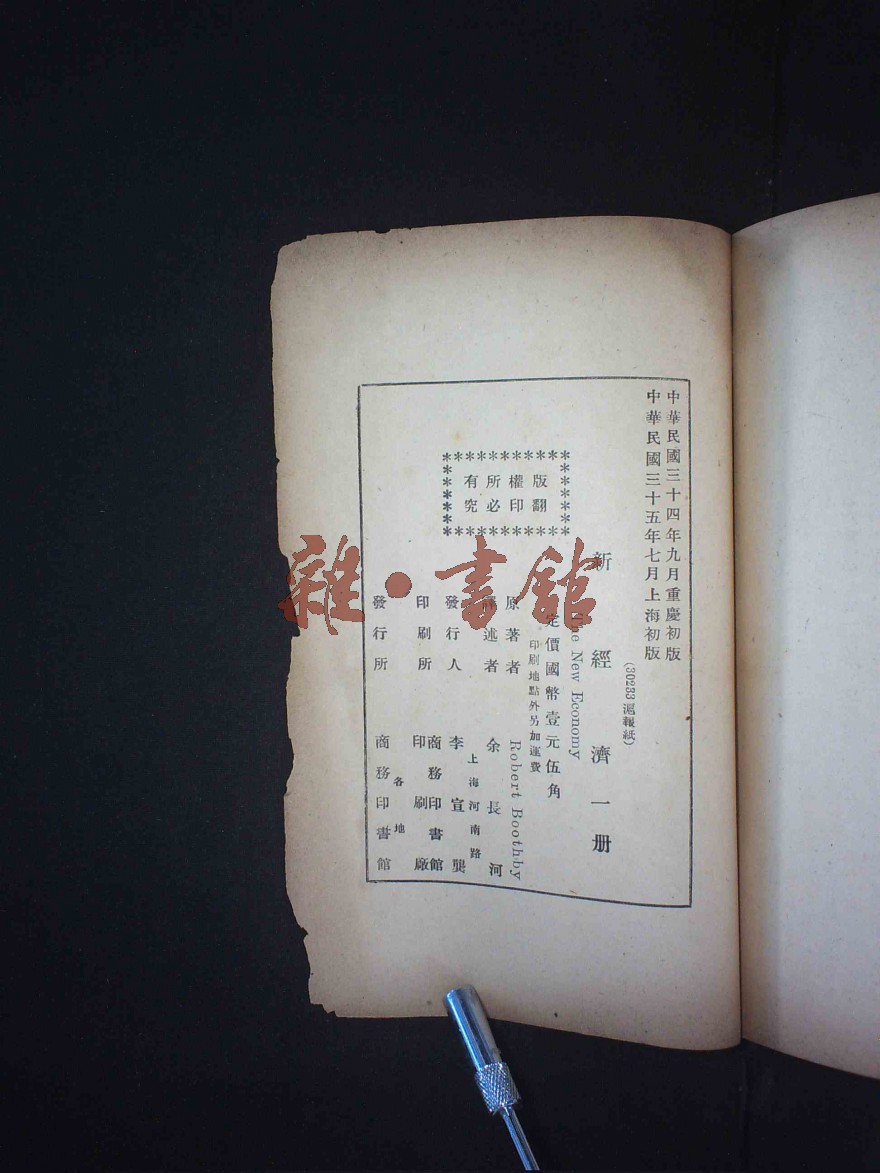 中華民國三十四年九月重慶初版
中華民國三十五年七月上海初版
(30233 滬報紙)
新經濟一册
The New Economy
定價國幣壹元伍角
印刷地點外另加運費
原著者 Robert Boothby
譯述者 余長河
上海河南路
發行人 李宣龔
印刷所 商務印書館
印刷廠
各地
發行所 商務印書館
版權所有
翻印必究
雜·書館